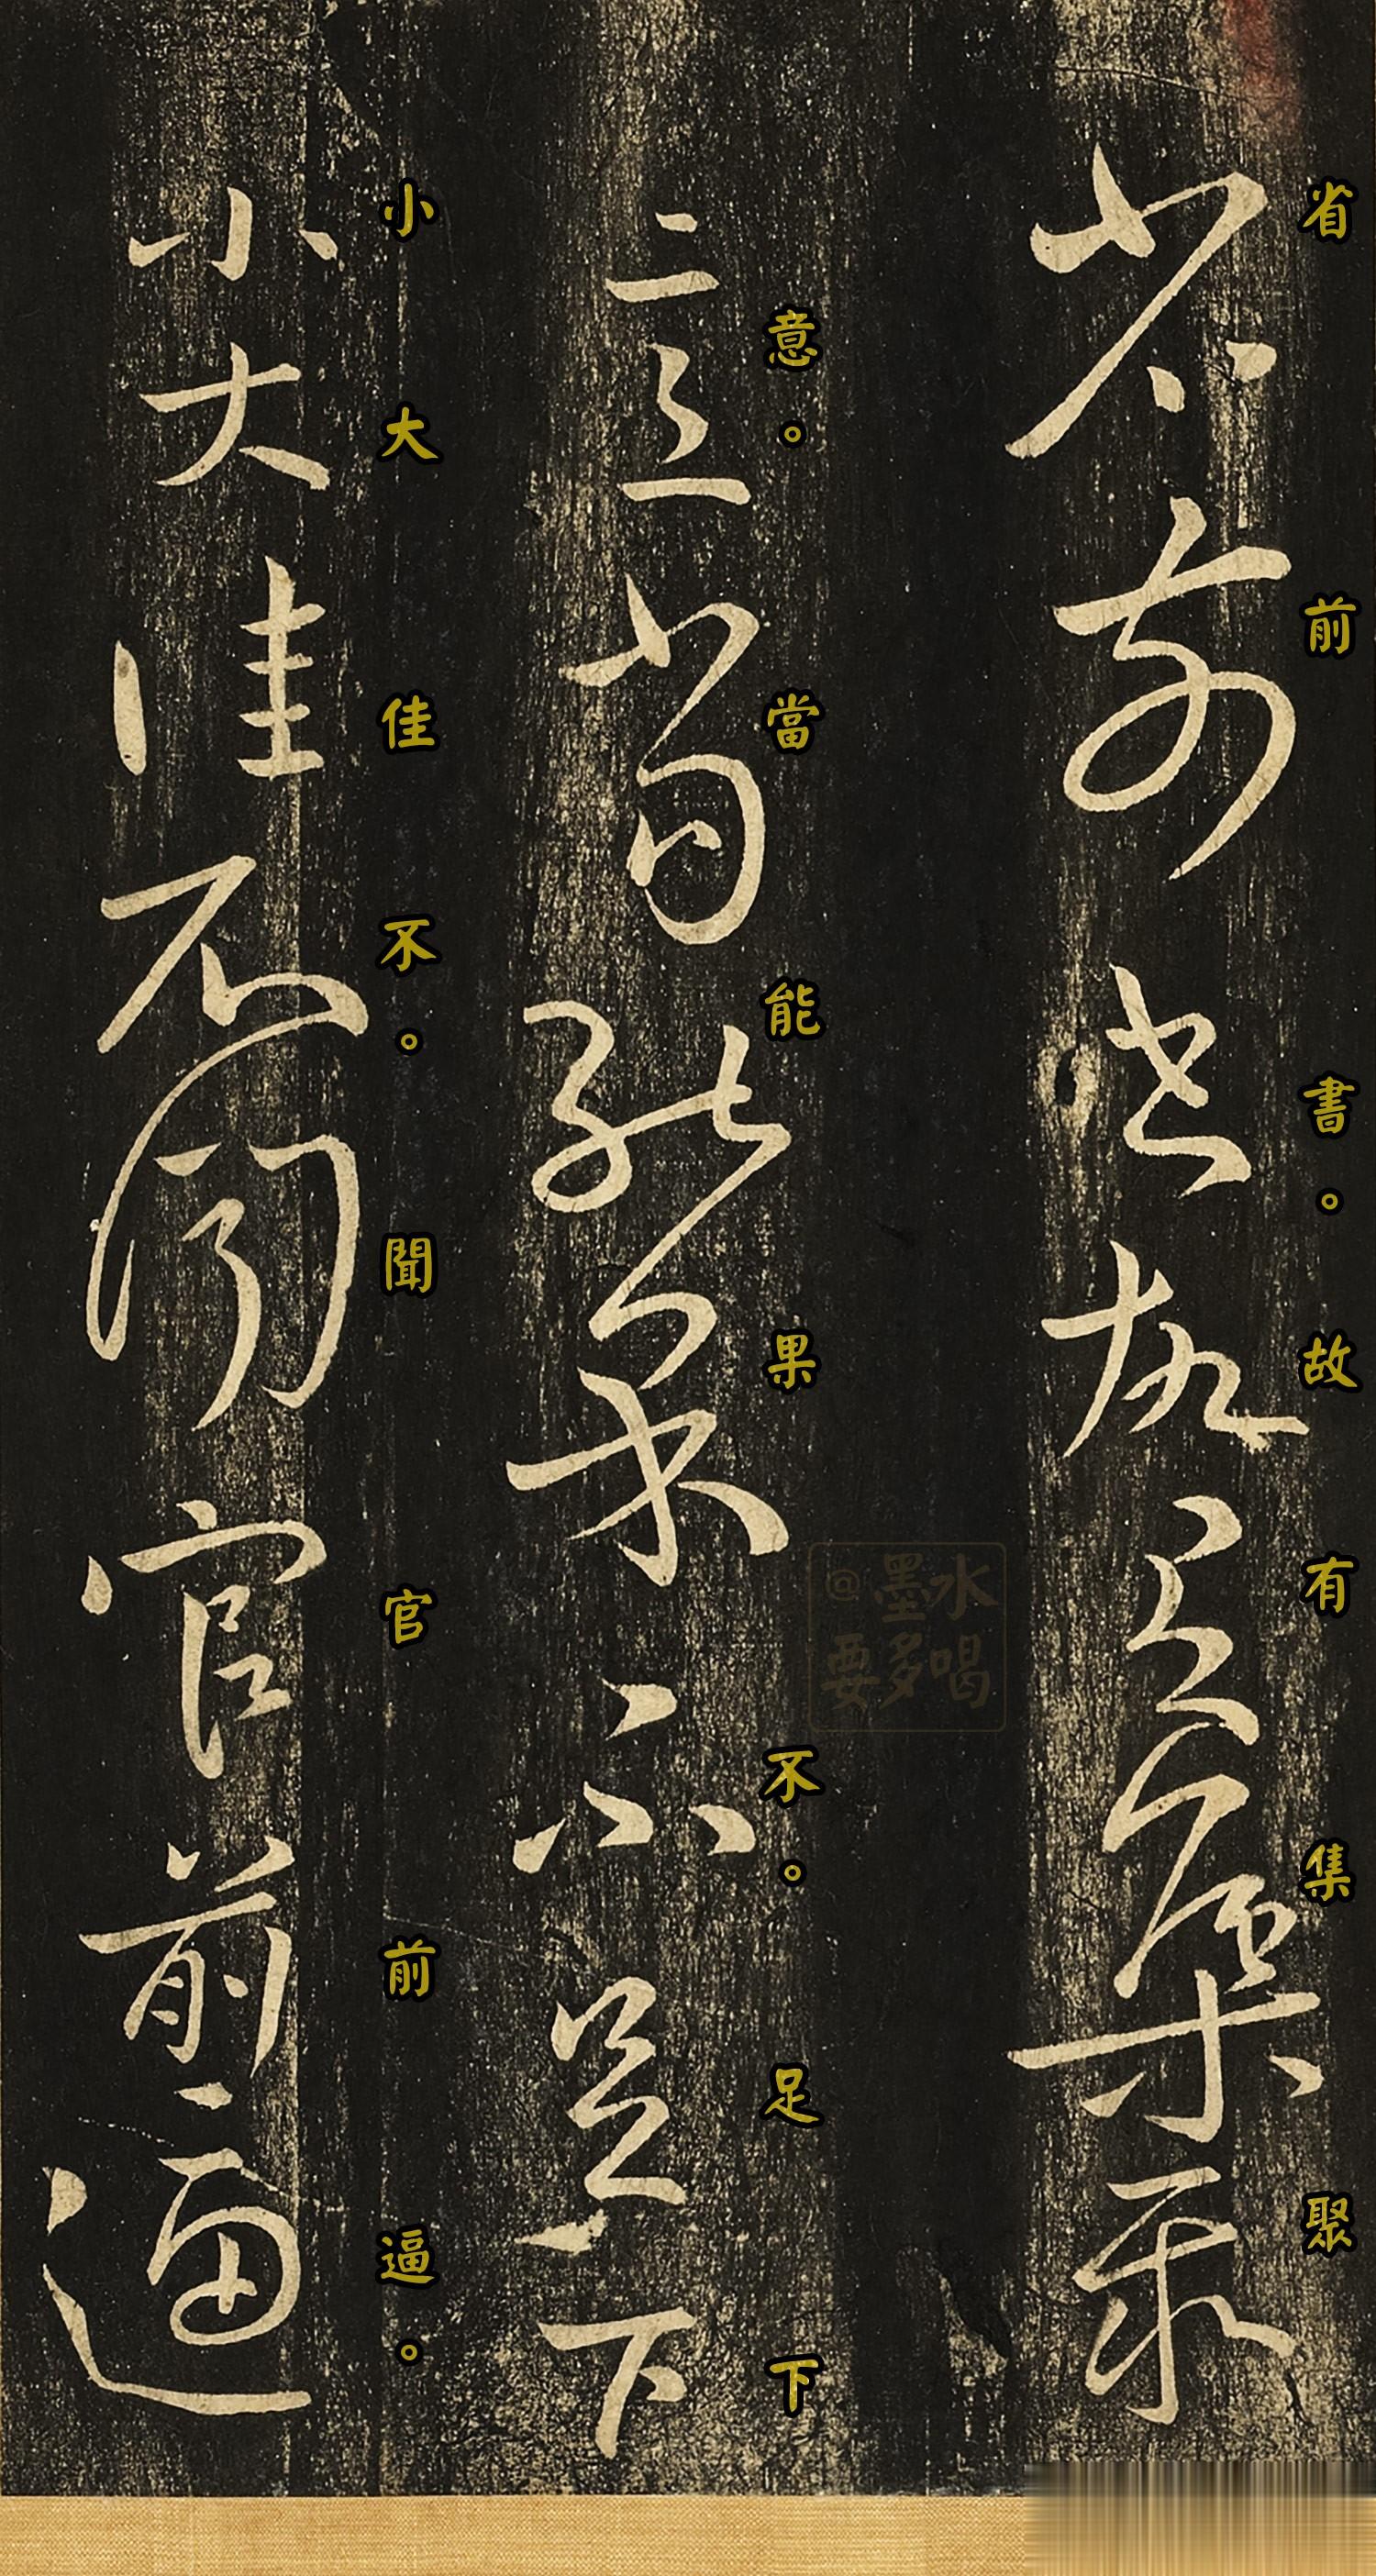 省前書。故有集聚
意。當能果不。足下
小大佳不。聞官前逼。
@墨水
要多喝